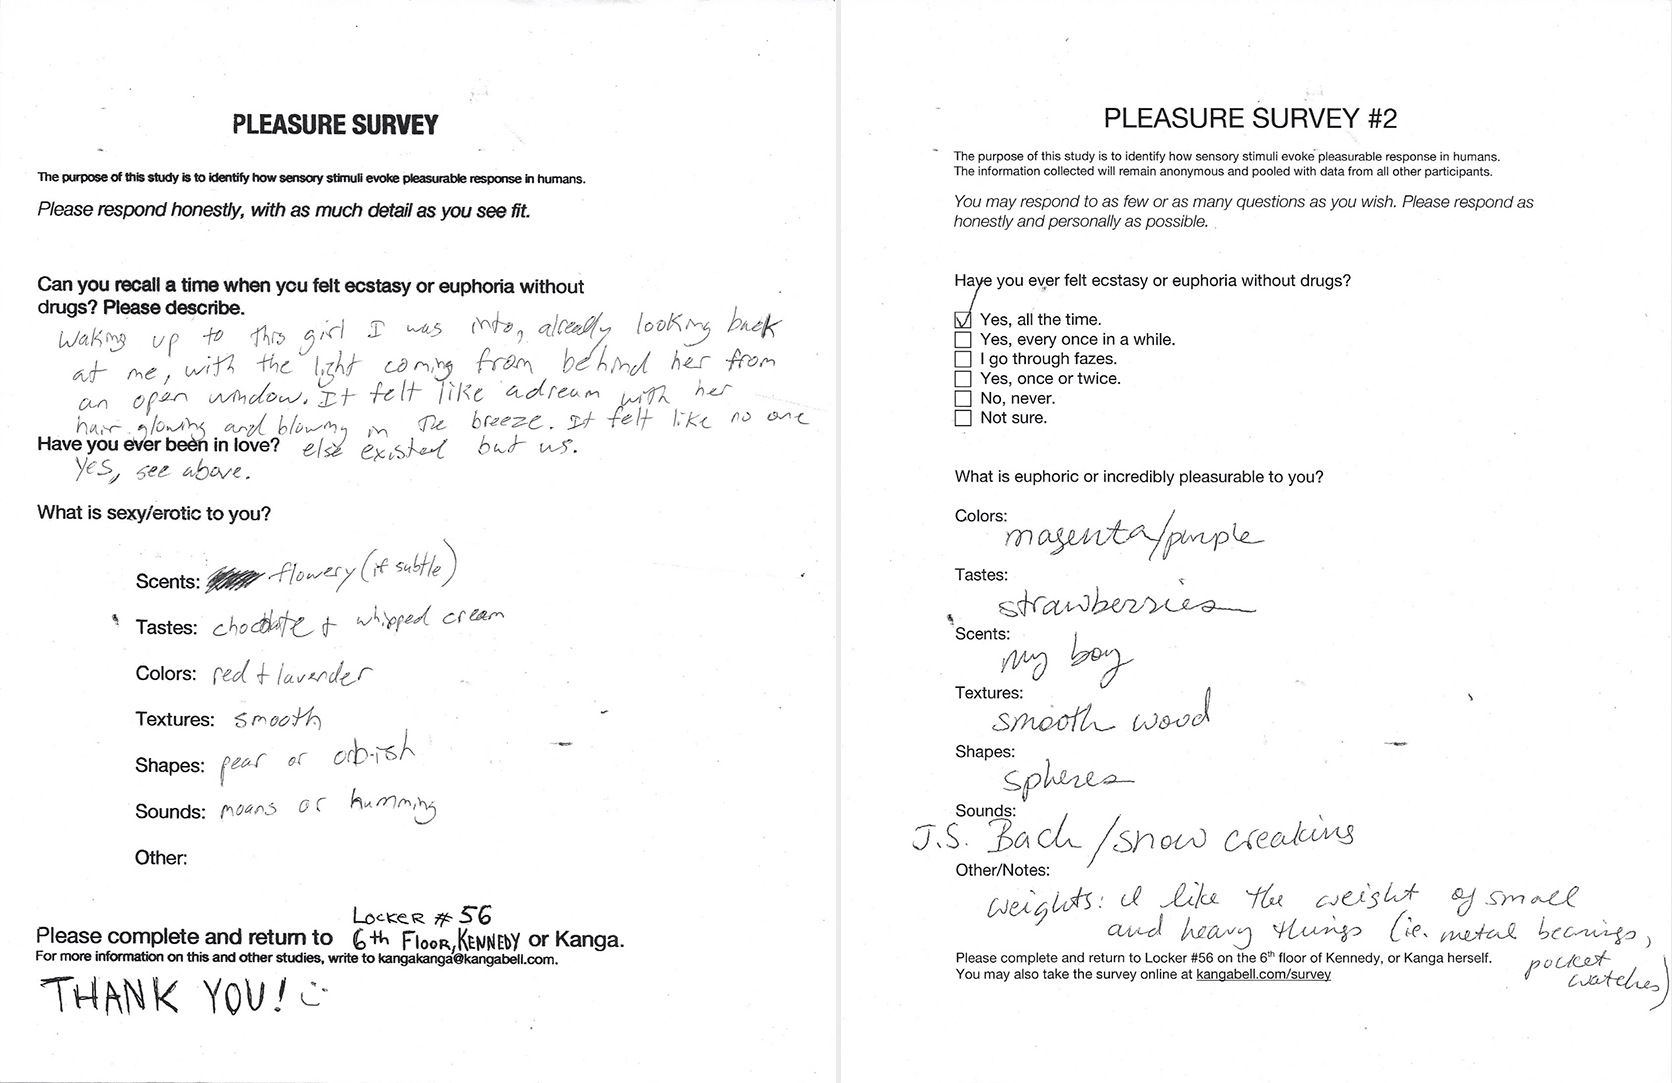 PLEASURE SURVEY
The purpose of this study is to identify how sensory stimuli evoke pleasurable response in humans.
Please respond honestly, with as much detail as you see fit.
Can you recall a time when you felt ecstasy or euphoria without
drugs? Please describe.
Waking up to this girl I was into, already looking back
at me, with the light coming from behind her from
an open window. It felt like a dream with her
hair glowing and blowing in the breeze. It felt like no one
Have you ever been in love? else existed but us.
Yes, see above.
What is sexy/erotic to you?
Scents: flowery (if subtle)
Tastes: chocolate + whipped cream
Colors: red + lavender
Textures: smooth
Shapes: pear or orb-ish
Sounds: moans or humming
Other:
Locker # 56
Please complete and return to 6th Floor, Kennedy or Kanga.
For more information on this and other studies, write to kangakanga@kangabell.com.
THANK YOU! :)
PLEASURE SURVEY #2
The purpose of this study is to identify how sensory stimuli evoke pleasurable response in humans.
The information collected will remain anonymous and pooled with data from all other participants.
You may respond to as few or as many questions as you wish. Please respond as
honestly and personally as possible.
Have you ever felt ecstasy or euphoria without drugs?
☑ Yes, all the time.
☐ Yes, every once in a while.
☐ I go through fazes.
☐ Yes, once or twice.
☐ No, never.
☐ Not sure.
What is euphoric or incredibly pleasurable to you?
Colors:
magenta/purple
Tastes:
strawberries
Scents:
my boy
Textures:
smooth wood
Shapes:
spheres
Sounds:
J.S. Bach/snow creaking
Other/Notes:
weights: I like the weight of small
and heavy things (ie. metal bearings,
Please complete and return to Locker #56 on the 6th floor of Kennedy, or Kanga herself.
pocket
You may also take the survey online at kangabell.com/survey
watches)